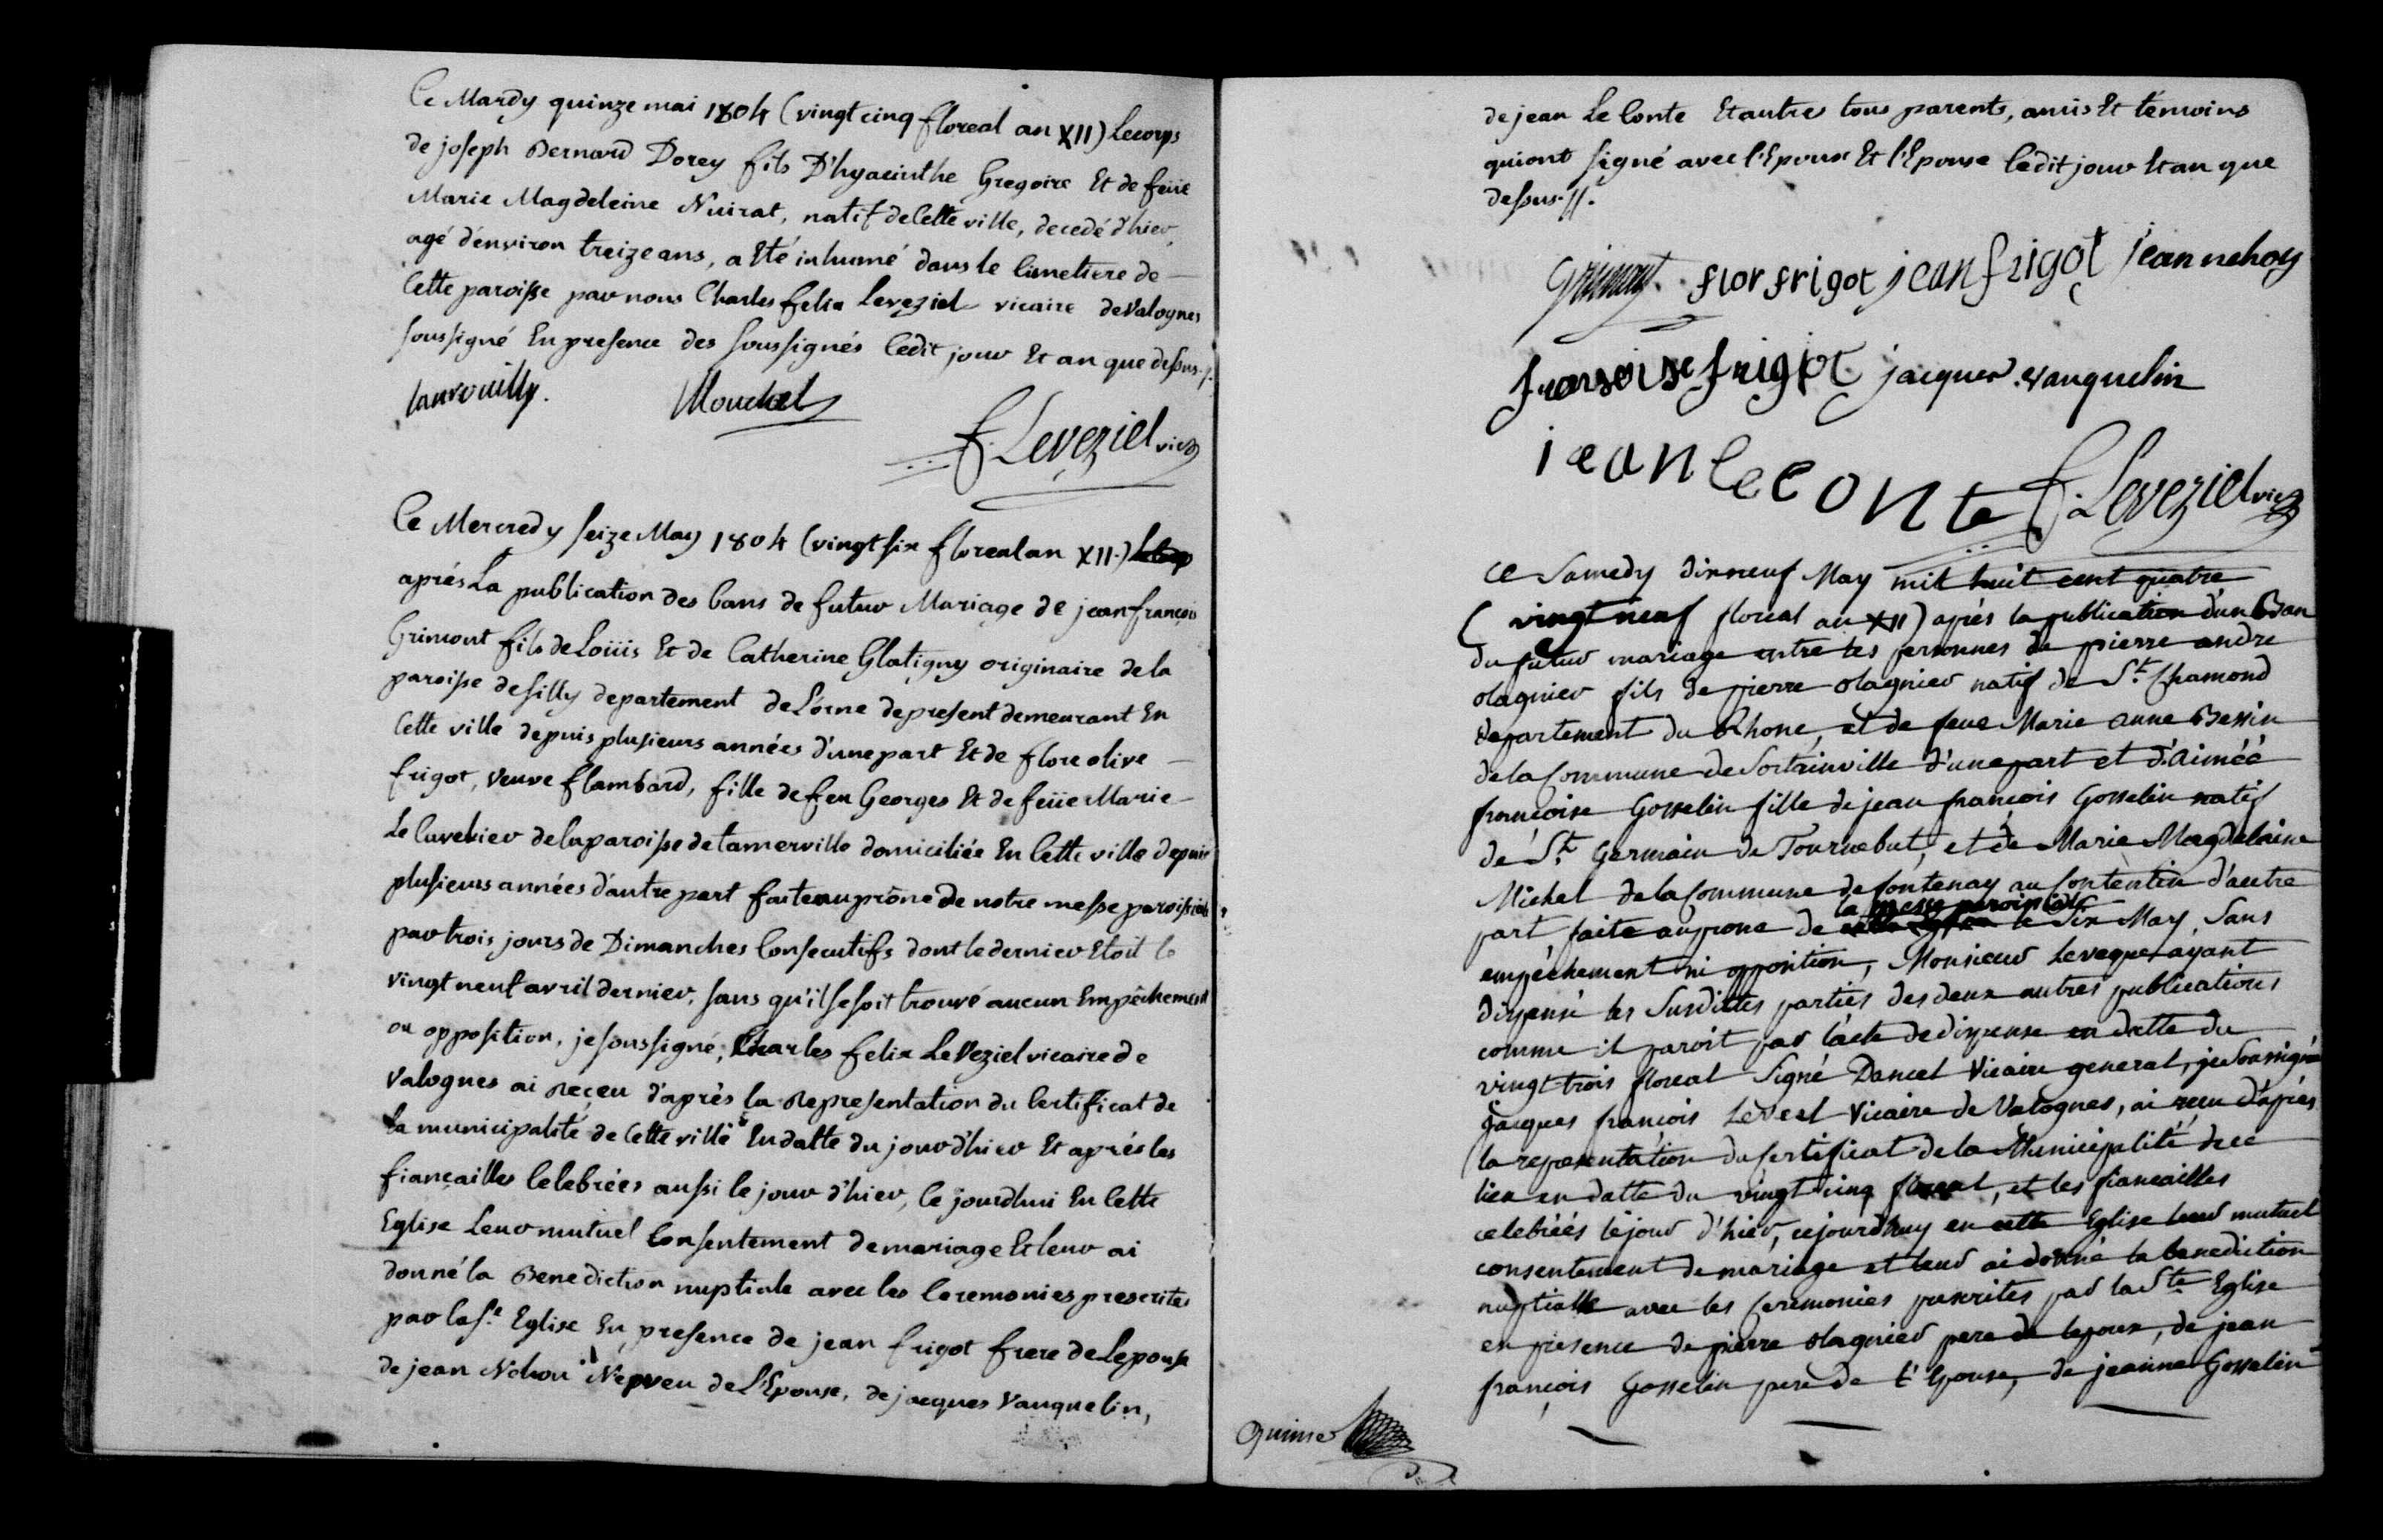 Ce Mardy quinze mai 1804 (vingt cinq floreal an XII) Lecorps
de joseph Bernard Dorey fils D'hyacinthe Gregoire Et de feüe
Marie Magdeleine Nuirat, natif de Cette ville, decedé d'hier,
agé d'environ treize ans, a Eté inhumé dans le Cimetiere de
Cette paroisse par nous Charles felix Leveziel vicaire de Valognes
soussigné En presence des soussignés Ledit jour Et an que dessus./.
Mouchel
F. Leveziel vic
Ce Mercredy seize May 1804 (vingt six floreal an XII.)
aprés La publication des bans de futur Mariage de jean francois
Grimont fils de Loüis Et de Catherine Glatigny originaire de la
paroisse de silly departement de L'orne depresent demeurant En
Cette ville depuis plusieurs années d'une part Et de flore olive
frigot, Veuve flambard, fille de feu Georges Et de feüe Marie
Le Cuvelier de la paroisse de tamerville domiciliée En Cette ville depuis
plusieurs années d'autre part faite au prône de notre messe paroissiale
par trois jours de Dimanches Consecutifs dont le dernier Etoit le
vingt neuf avril dernier, sans qu'il se soit trouvé aucun Empêchement
ou opposition, je soussigné, Charles felix Le Veziel vicaire de
Valognes ai Reçeu d'après la Representation du Certificat de
la municipalité de Cette ville En datte du jour d'hier Et aprés les
fiançailles Celebrées aussi le jour d'hier, Ce jourdhui En Cette
Eglise Leur mutuel Consentement de mariage Et leur ai
donné la Benediction nuptiale avec les Ceremonies prescrites
par la Ste Eglise En presence de jean frigot frere de Lepouse
de jean Nehou Nepveu de L'Epouse, de jacques Vauquelin,
de jean Le Conte Et autres tous parents, amis Et témoins
qui ont signé avec l'Epoux Et l'Epouse Ledit jour Et an que
dessus.//.
Grimont. flor frigot jean frigot jean nehoy
fransoise frigot jacques vauquelin
jean le conte F. Leveziel vic
Ce Samedy dixneuf May mil huit cent quatre
( vingt neuf floreal an XII) après la publication d'un Ban
du futur mariage entre les personnes de pierre andre
olagnier fils de pierre olagnier natif de St. Chamond
departement du Rhone, et de feue Marie anne Bessin
de la Commune de Sortainville d'une part et d'aimée
françoise Gosselin fille de jean françois Gosselin natif
de St. Germain de Tournebut, et de Marie Magdelaine
Michel de la Commune de fontenay au Contentin d'autre
part, faite au prone de la messe paroissiale le Six May, Sans
empêchement ni opposition, Monsieur Leveque ayant
dispensé les Susdittes parties des deux autres publications
comme il paroit par l'acte de dispense en datte du
vingt trois floreal Signé Dancel Vicaire general, je Soussigné
jacques françois Leveel Vicaire de Valognes, ai reçu d'après
la representation du certificat de la Municipalité de ce
lieu en datte du vingt cinq floreal, et les fiancailles
celebréés le jour d'hier, cejourdhuy en cette Eglise leur mutuel
consentement de mariage et leur ai donné la benediction
nuptialle avec les Ceremonies prescrites par la Ste Eglise
en presence de pierre olagnier pere de lepoux, de jean
françois Gosselin pere de l'Epouse, de jeanne Gosselin